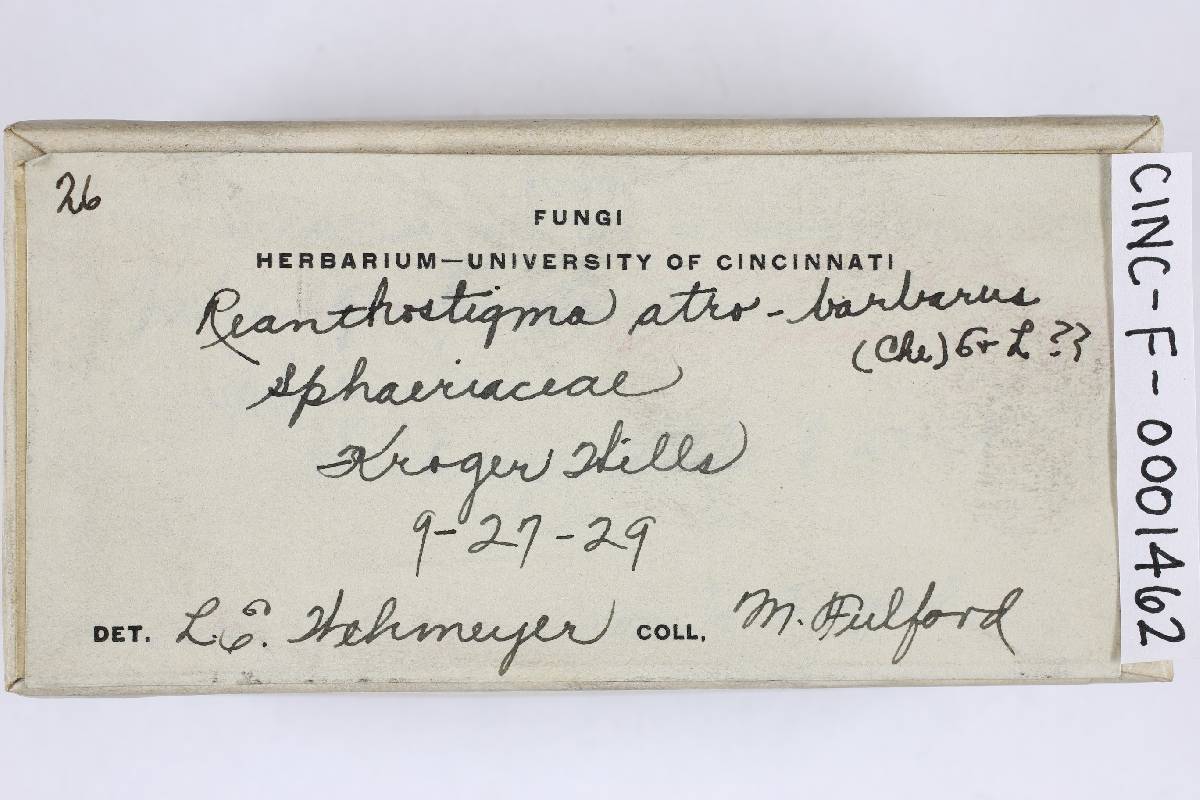 26
FUNGI
HERBARIUM—UNIVERSITY OF CINCINNATI
Reanthostigma atro-barbarus
(Che) G+ L ??
Sphaeriaceae
Kroger Hills
9-27-29
DET. L.E. Wehmeyer COLL. M. Fulford
CINC-F-0001462